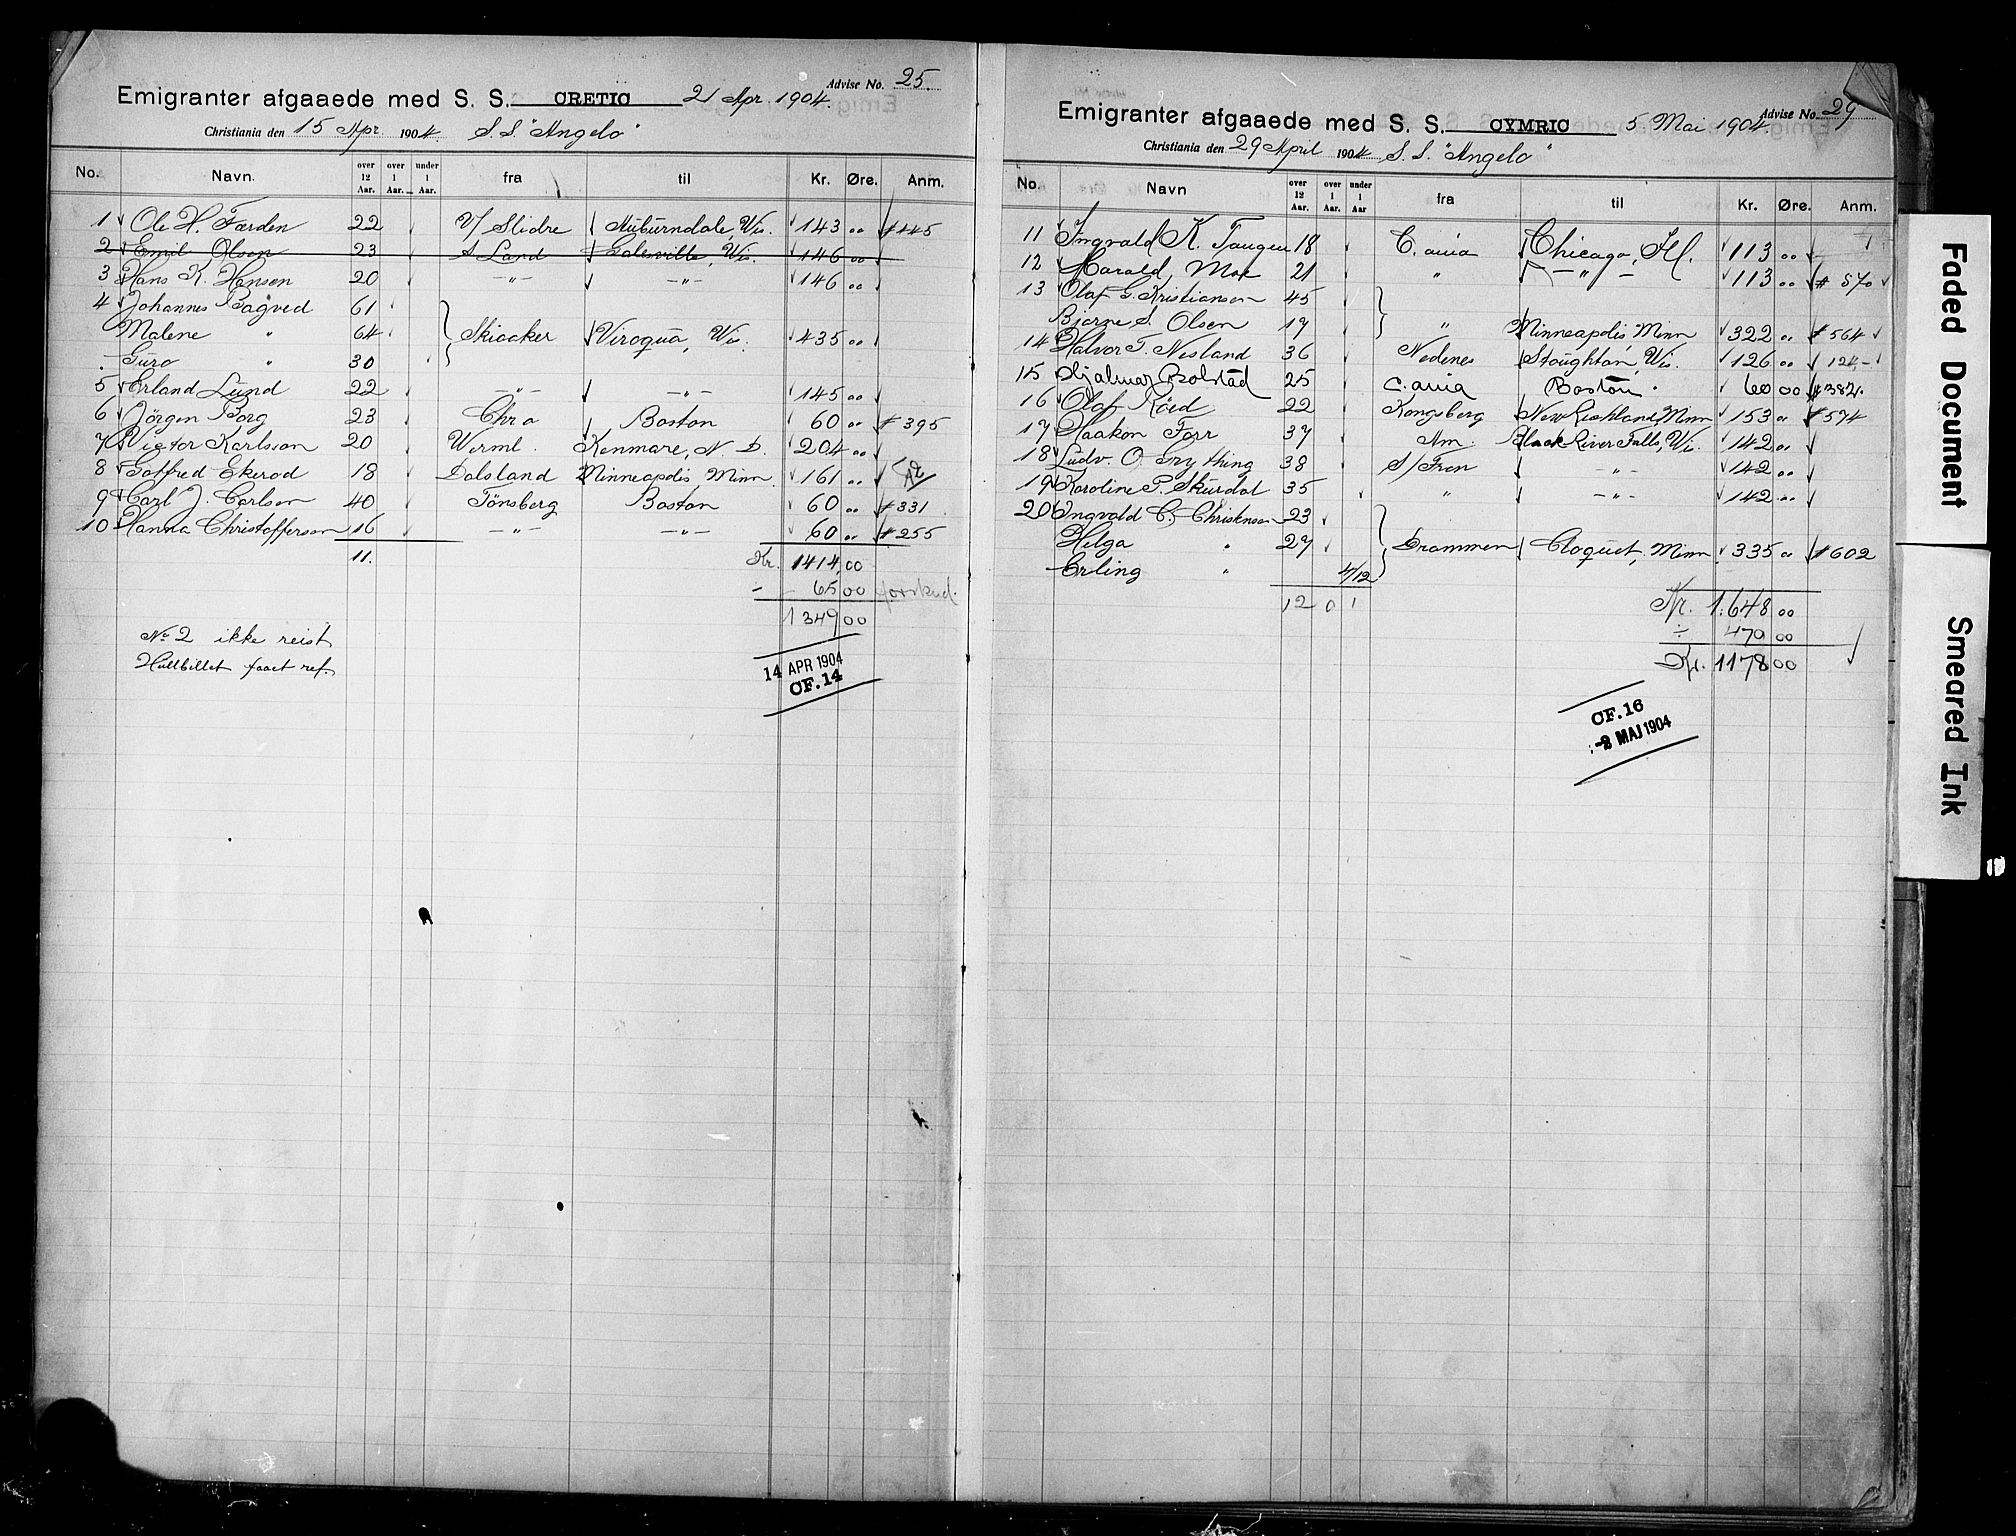 Advise No. 25
Emigranter afgaaede med S. S. CRETIC 21 Apr. 1904.
Christiania den 15 Apr. 1904 S.S. "Angelo"
No. Navn. over 12 Aar. over 1 Aar. under 1 Aar. fra til Kr. Øre. Anm.
1 Ole H. Færden 22 V/ Slidre Auburndale, Wis. 143 00 #445
2 Emil Olsen 23 S Land Galesville, Wis. 146 00
3 Hans K. Hansen 20 -"- -"- 146 00
4 Johannes Bagved 61
Malene " 64 Skiaaker Viroqua, Wis. 435 00
Guro " 30
5 Erland Lund 22 -"- -"- 145 00
6 Jörgen Borg 23 Chra Boston 60 00 #395
7 Victor Karlsson 20 Werml. Kenmare, N. D. 204 00
8 Gotfred Ekerod 18 Dalsland Minneapolis Minn. 161 00
9 Carl J. Carlson 40 Tönsberg Boston 60 00 #331
10 Hanna Christofferson 16 -"- -"- 60 00 #255
11. Kr. 1414,00
- 65 00 forskud.
1349 00
No 2 ikke reist
Hullbillet faaet ref.
14 APR 1904
CF. 14
Advise No. 29
Emigranter afgaaede med S. S. CYMRIC 5 Mai 1904.
Christiania den 29 April 1904 S.S. "Angelo"
No. Navn over 12 Aar. over 1 Aar. under 1 Aar fra til Kr. Øre. Anm.
11 Ingvald K. Taugen 18 C.ania Chicago, Ill. 113 00
12 Harald Moe 21 " -"- 113 00 #570
13 Olaf G. Kristiansen 45
Bjarne S. Olsen 19 " Minneapolis Minn 322 00 #564
14 Halvor T. Nesland 36 Nedenes Stoughton, Wis. 126 00 124-
15 Hjalmar Bolstad 25 C.ania Boston. 60 00 #382.
16 Olaf Röed 22 Kongsberg New Richland, Minn 153 00 #574
17 Haakon Forr 37 Am. Black River Falls, Wis. 142 00
18 Ludv. O. Frything 38 S/Fron -"- 142 00
19 Karoline P. Skurdal 35 " -"- 142 00
20 Ingvald C. Christensen 23
Helga " 27 Drammen Cloquet, Minn. 335 00 #602
Erling " 4/12
12 0 1 Kr. 1.648 00
÷ 470 00
Kr. 1178 00
CF. 16
-2 MAJ 1904
Faded Document
Smeared Ink